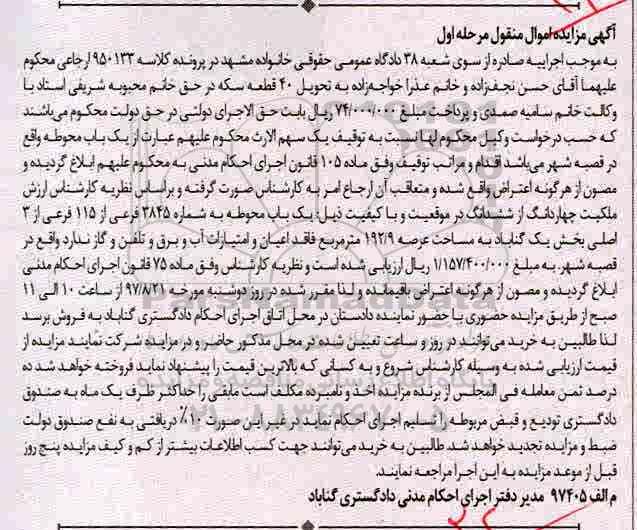 آگهی مزایده اموال منقول مرحله اول
به موجب اجراییه صادره از سوی شعبه ۳۸ دادگاه عمومی حقوقی خانواده مشهد در پرونده کلاسه ۹۵۰۱۳۳ ارجاعی محکوم
علیهما آقای حسن نجفزاده و خانم عذرا خواجه‌زاده به تحویل ۴۰ قطعه سکه در حق خانم محبوبه شریفی استاد با
وکالت خانم سامیه صمدی و پرداخت مبلغ ۷۴/۰۰۰/۰۰۰ ریال بابت حق الاجرای دولتی در حق دولت محکوم می‌باشند
که حسب درخواست وکیل محکوم لها نسبت به توقیف یک سهم الارث محکوم علیهم عبارت از یک باب محوطه واقع
در قصبه شهر می‌باشد اقدام و مراتب توقیف وفق ماده ۱۰۵ قانون اجرای احکام مدنی به محکوم علیهم ابلاغ گردیده و
مصون از هرگونه اعتراض واقع شده و متعاقب آن ارجاع امر به کارشناس صورت گرفته و براساس نظریه کارشناس ارزش
ملکیت چهاردانگ از ششدانگ در موقعیت و با کیفیت ذیل: یک باب محوطه به شماره ۳۸۴۵ فرعی از ۱۱۵ فرعی از ۳
اصلی بخش یک گناباد به مساحت عرصه ۱۹۲/۹ مترمربع فاقد اعیان و امتیازات آب و برق و تلفن و گاز ندارد واقع در
قصبه شهر به مبلغ ۱/۱۵۷/۴۰۰/۰۰۰ ریال ارزیابی شده است و نظریه کارشناس وفق ماده ۷۵ قانون اجرای احکام مدنی
ابلاغ گردیده و مصون از هرگونه اعتراض باقیمانده و لذا مقرر شده در روز دوشنبه مورخه ۹۷/۸/۲۱ از ساعت ۱۰ الی ۱۱
صبح از طریق مزایده حضوری با حضور نماینده دادستان در محل اتاق اجرای احکام دادگستری گناباد به فروش برسد
لذا طالبین به خرید می‌توانند در روز و ساعت تعیین شده در محل مذکور حاضر و در مزایده شرکت نمایند مزایده از
قیمت ارزیابی شده به وسیله کارشناس شروع و به کسانی که بالاترین قیمت را پیشنهاد نماید فروخته خواهد شد ده
درصد ثمن معامله فی المجلس از برنده مزایده اخذ و نامبرده مکلف است مابقی را حداکثر ظرف یک ماه به صندوق
دادگستری تودیع و قبض مربوطه را تسلیم اجرای احکام نماید در غیر این صورت ۱۰٪ دریافتی به نفع صندوق دولت
ضبط و مزایده تجدید خواهد شد طالبین به خرید می‌توانند جهت کسب اطلاعات بیشتر از کم و کیف مزایده پنج روز
قبل از موعد مزایده به این اجرا مراجعه نمایند.
م الف ۹۷۴۰۵ مدیر دفتر اجرای احکام مدنی دادگستری گناباد